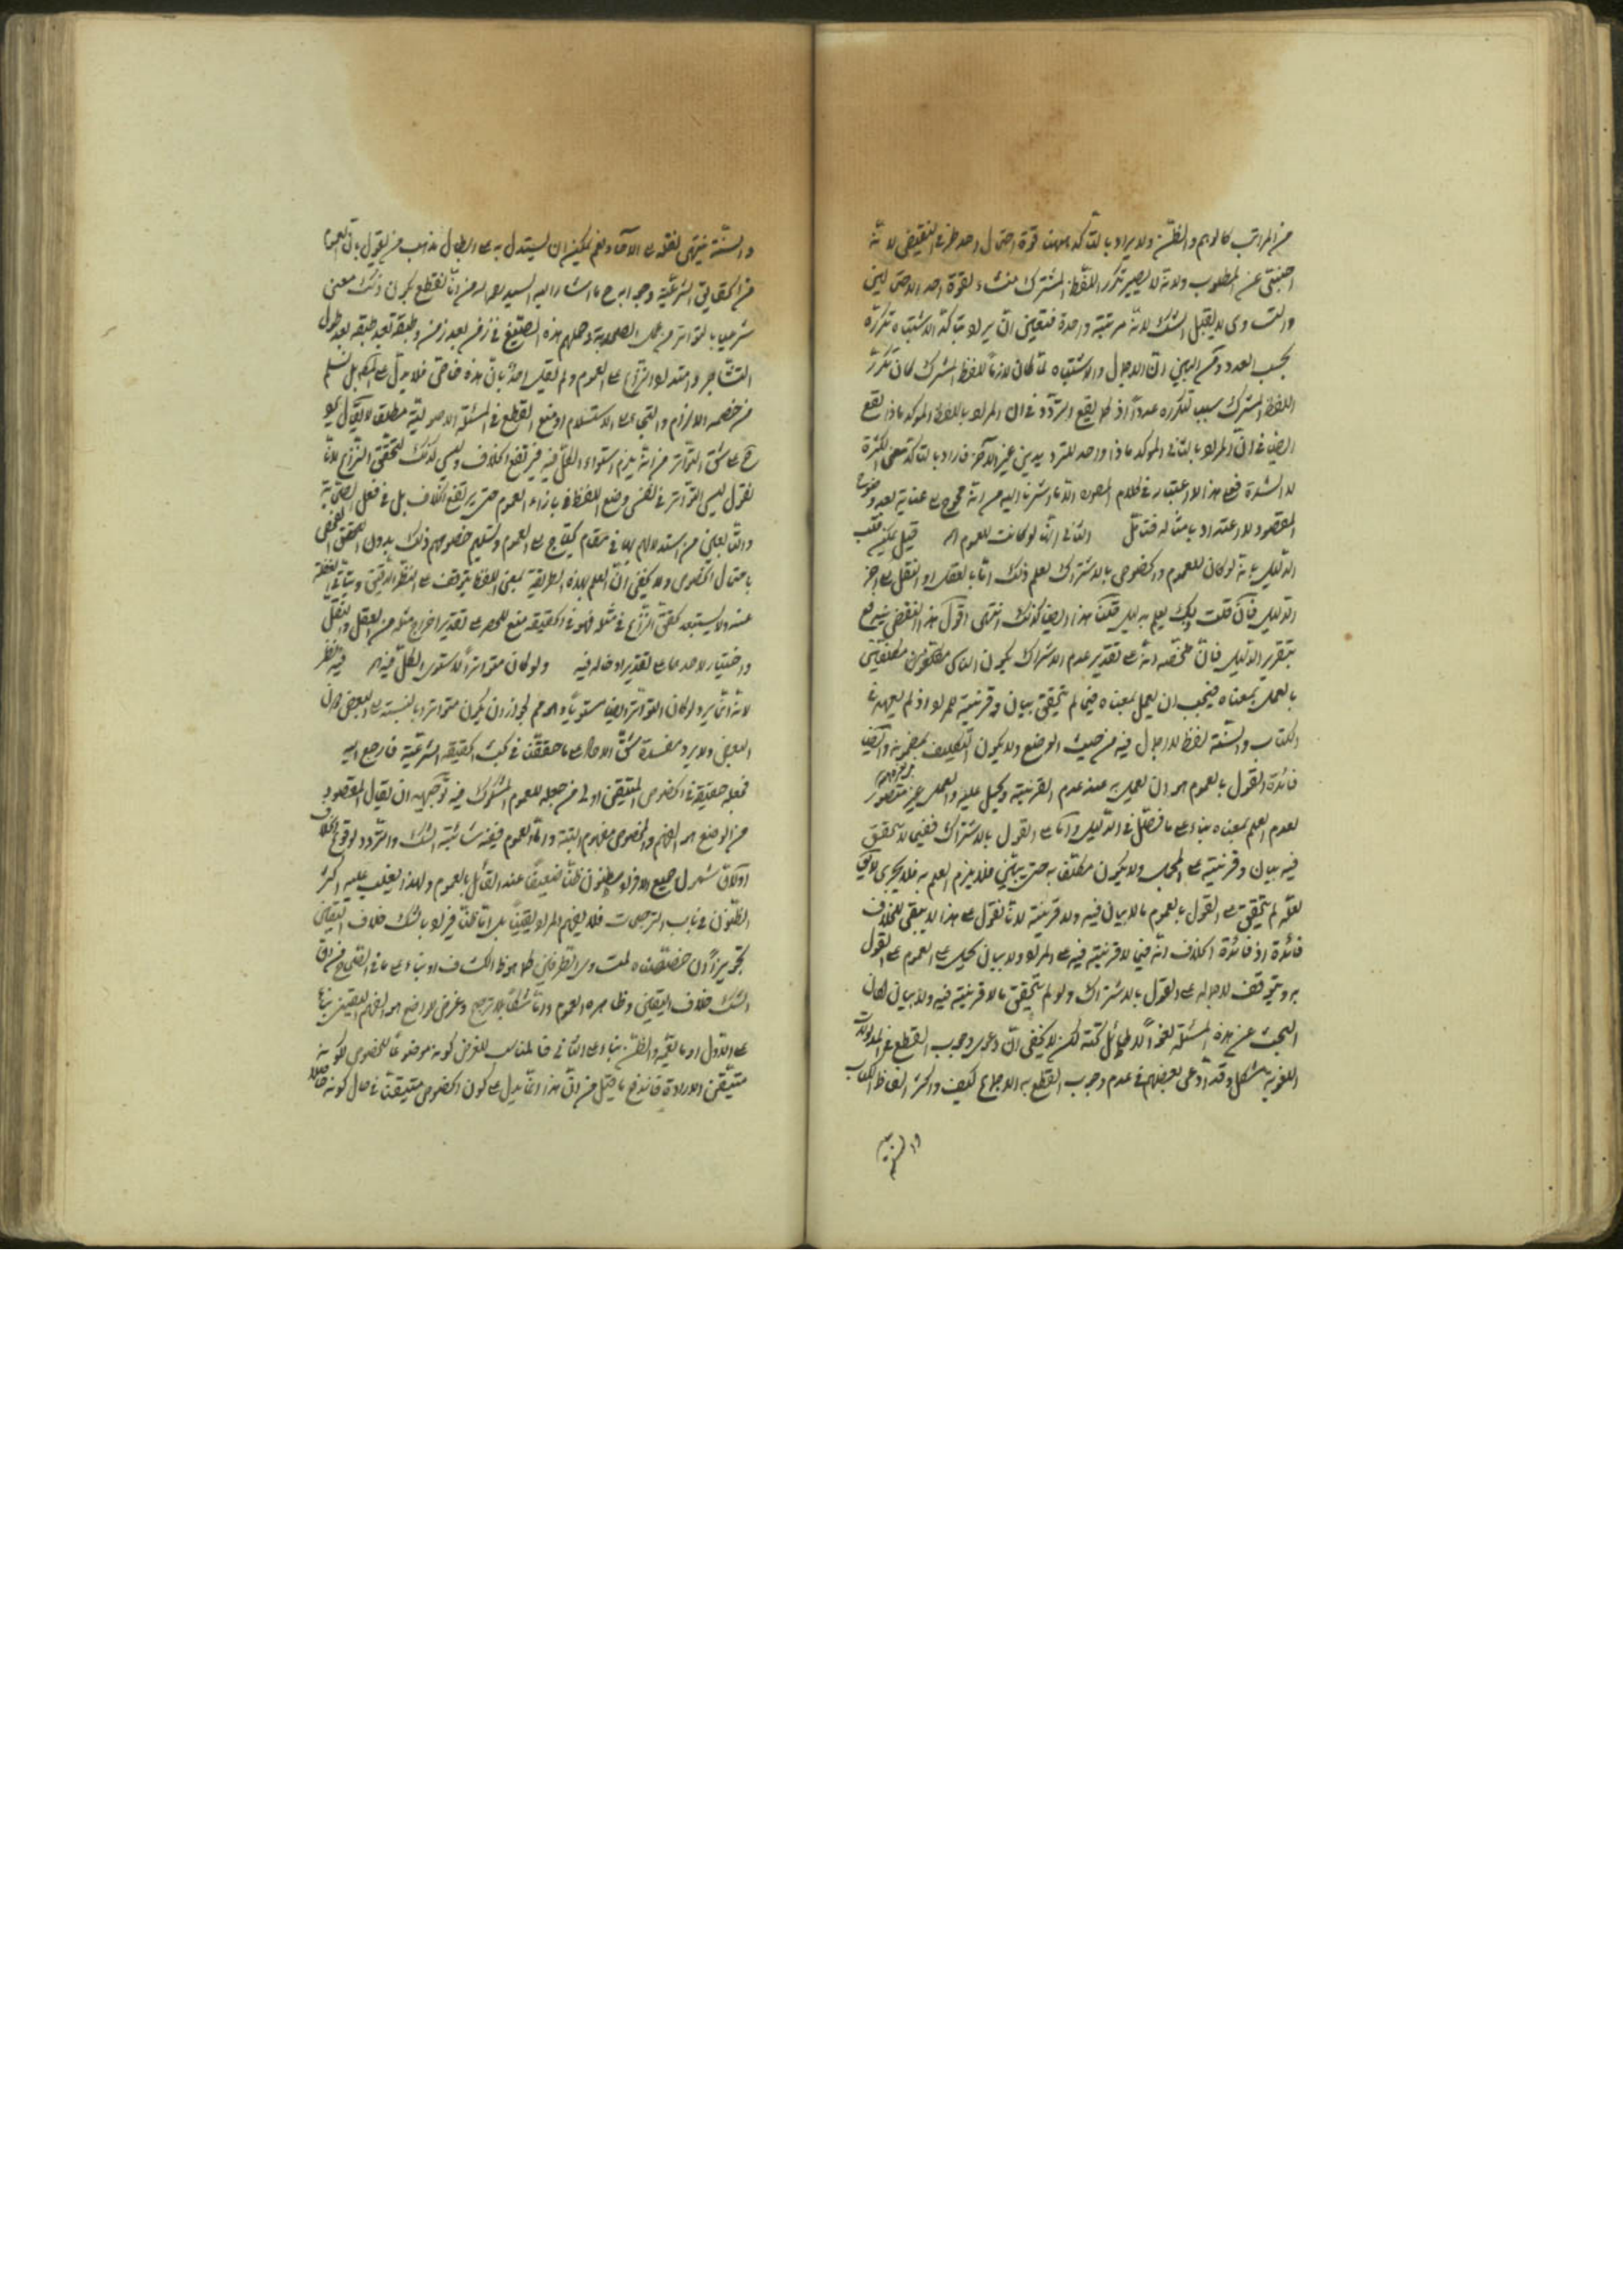 من المراتب كالوهم والظن ولا يراد بالتأكد ههنا قوة احتمال احد طرفي النقيض لانه
اجنبي عن المطلوب ولانه لا يصير تكرر اللفظ المشترك منشاء لقوة احد الاحتمالين
والتساوى لا يقبل الشك لانه مرتبة واحدة فتعين ان يراد بتأكد الاشتباه تكرره
بحسب العدد ومن البين ان الاجمال والاشتباه لما كان لازماً للفظ المشترك كان تكرر
اللفظ المشترك سبب لتكرره عدداً اذ كما يقع التردد في ان المراد باللفظ الموكد ماذا يقع
ايضا في ان المراد بالثاني الموكد ماذا واحد التردیدين غير الآخر فاراد بالتأكد معنى الكثرة
لا الشدة فعلى هذا الاعتبار في كلام المصـ الا ما اشرنا اليه من انه محوج الى عناية بعد وضوح
المقصود لا اعتداد بامثاله فتأمل الثاني انها لو كانت للعموم اه قيل يمكن قلب
الدليل بانه لو كان للعموم والخصوص بالاشتراك لعلم ذلك اما بالعقل او النقل الى آخر
الدليل فان قلت لعله يعلم بدليل قلنا هذا ايضا كذلك انتهى اقول هذا النقض يندفع
بتقرير الدليل فان ملخصه انه على تقدير عدم الاشتراك يكون الناس مكلفين
بالعمل بمعناه فيجب ان يعمل بمعناه فيما لم يتحقق بيان وقرينة المراد اذ لم يعهد في
الكتاب والسنة لفظ لا اجمال فيه من حيث الوضع ولا يكون التكليف بمضمونه وايضا
فائدة القول بالعموم هو ان يعمل به عند عدم القرينة ويحمل عليه والعمل غير متصور
لعدم العلم بمعناه بناء على ما فصل في الدليل واما على القول بالاشتراك ففيما لا يتحقق
فيه بيان وقرينة على المجمل ولا يكون مكلفا به حتى يبين فلا يلزم العلم به فلا يجرى لا يق
لعله لم يتحقق على القول بالعموم ما لا بيان فيه ولا قرينة لانا نقول على هذا لا يبقى للخلاف
فائدة اذ فائدة الخلاف انه فيما لا قرينة فيه على المراد ولا بيان يحمل على العموم على القول
به ويتوقف لاجماله على القول بالاشتراك ولو لم يتحقق ما لا قرينة فيه ولا بيان لكان
البحث عن هذه المسئلة لغواً لا طائل تحته لكن لا يخفى ان دعوى وجوب القطع في المدلولات
اللغوية مشكل وقد ادعى بعضهم في عدم وجوب القطع به الاجماع كيف واكثر الفاظ الكتاب
والسنة
والسنة ينتهى نقله الى الآحاد نعم يمكن ان يستدل به على ابطال مذهب من يقول بان العموم
من الحقايق الشرعية وجه ابرح ما اشار اليه السيد من انا نقطع بكون ذلك معنى
شرعيا بالتواتر من عمل الصحابة وحملهم هذه الصيغ في زمن بعد زمن وطبقة بعد طبقة بعد طول
التشاجر وامتداد النزاع على العموم ولم يقل احد بان هذه خاص فلا يدل على العموم بل نسلم
من خصمه الالزام والتجاء الى الاستسلام او منع القطع في المسئلة الاصولية مطلقا لا يقال يجو
على شق التواتر من انه يلزم استواء الكل فيه فيرتفع الخلاف وليس لذلك لتحقق النزاع لانا
نقول ليس التواتر في نفس وضع اللفظ بازاء العموم حتى يرتفع الخلاف بل في فعل الصحابة
والتابعين من استدلالهم بها في مقام يحتاج الى العموم وتسليم خصومهم ذلك بدون
باحتمال الخصوص ولا يخفى ان العلم بهذه الطريقة بمعنى اللفظ يتوقف على النظر الدقيق ويتأتى الغفلة
عنه ولا يستبعد تحقق النزاع في مثله فهو في الحقيقة منع للحصر على تقدير اخراج مثله من العقل والنقل
واختيار لاحدهما على تقدير ادخاله فيه ولو كان متواتراً لاستوى الكل فيه اه فيه نظر
لانه انما يرد لو كان التواتر ايضا مستوياً وهو مم لجواز ان يكون متواترا بالنسبة الى البعض دون
البعض ولا يرد مفسدة شق الآحاد على ما حققت في بحث الحقيقة الشرعية فارجع اليه
فجعله حقيقة في الخصوص المتيقن اولى من جعله للعموم المشكوك فيه توجيهه ان يقال المقصود
من الوضع هو الفهم والخصوص مفهوم البتة واما العموم ففيه شائبة الشك والتردد لوقوع الخلاف
اولان شمول جميع الافراد مظنون ظناً ضعيفاً عند القائل بالعموم ولهذا يغلب عليه اكثر
الظنون في باب الترجيحات فلا يفهم المراد يقيناً بل اما ظناً فيراد بالشك خلاف اليقين
تجويزاً وان خصصناه لمتساوى الطرفين كما هو ظ الكشاف او بناء على ما في الصحاح من ان
الشك خلاف اليقين وظاهره العموم واما شكاً بلا ترجيح وغرض الواضع هو الفهم اليقين بناء
على الاول او ما يعمه والظن بناء على الثاني فالمناسب للغرض كونه موضوعاً للخصوص لكونه
متيقن الارادة فاندفع ما قيل من ان هذا انما يدل على كون الخصوص متيقنا في حال كونه